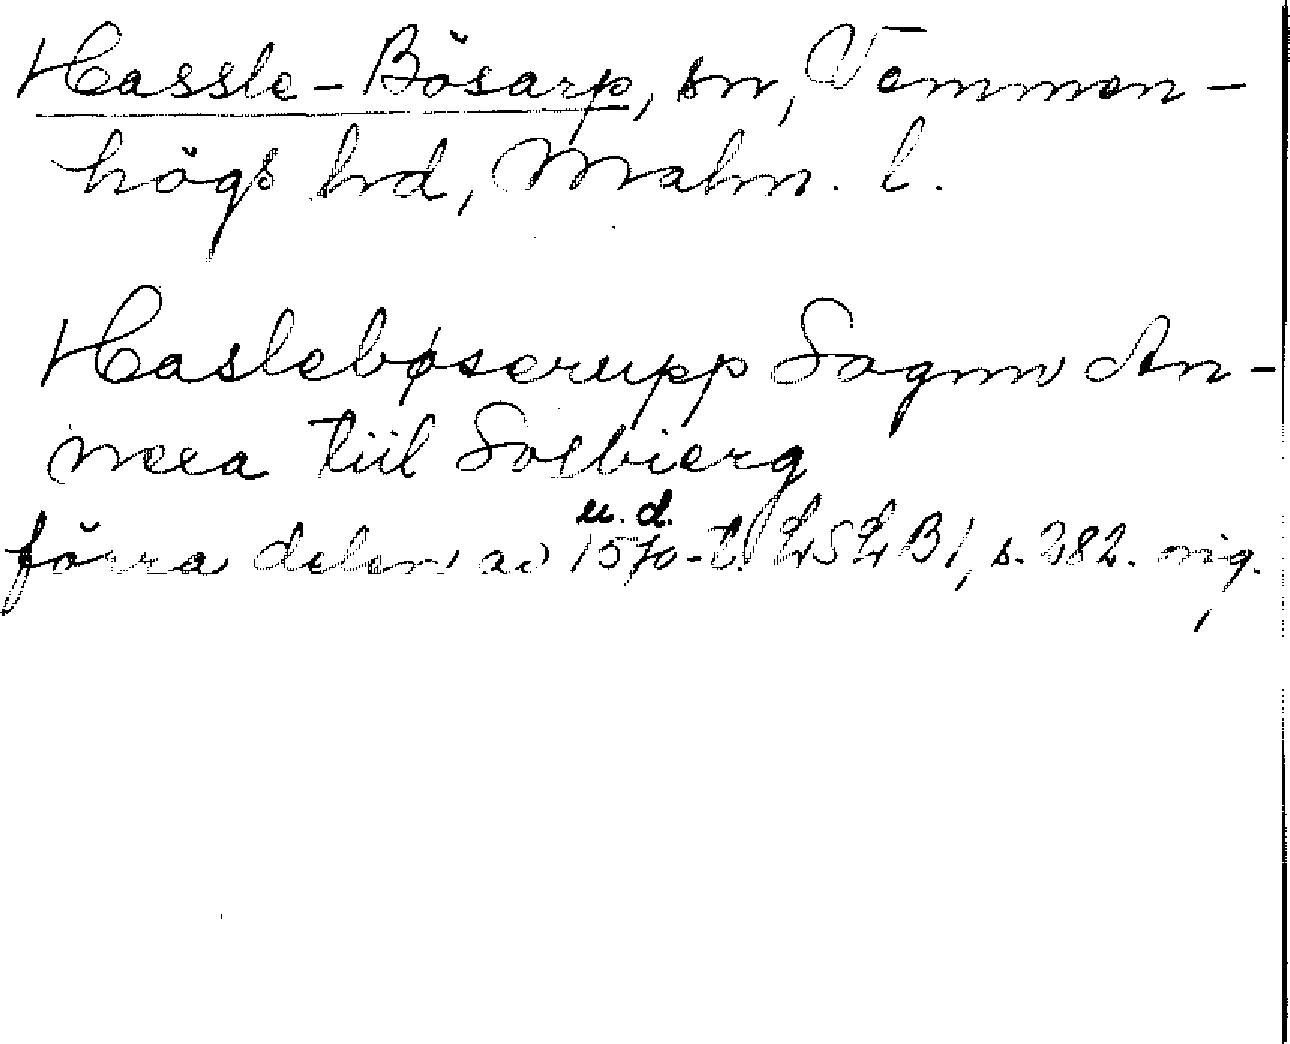 Hassle-Bösarp, sn, Vemmen-
högs hd, Malm. l.
Haslebøserupp Sognn An-
nexa tiil Solbierg
u. d.
förra delen av 1570-t. LSLB1, s. 282. orig.